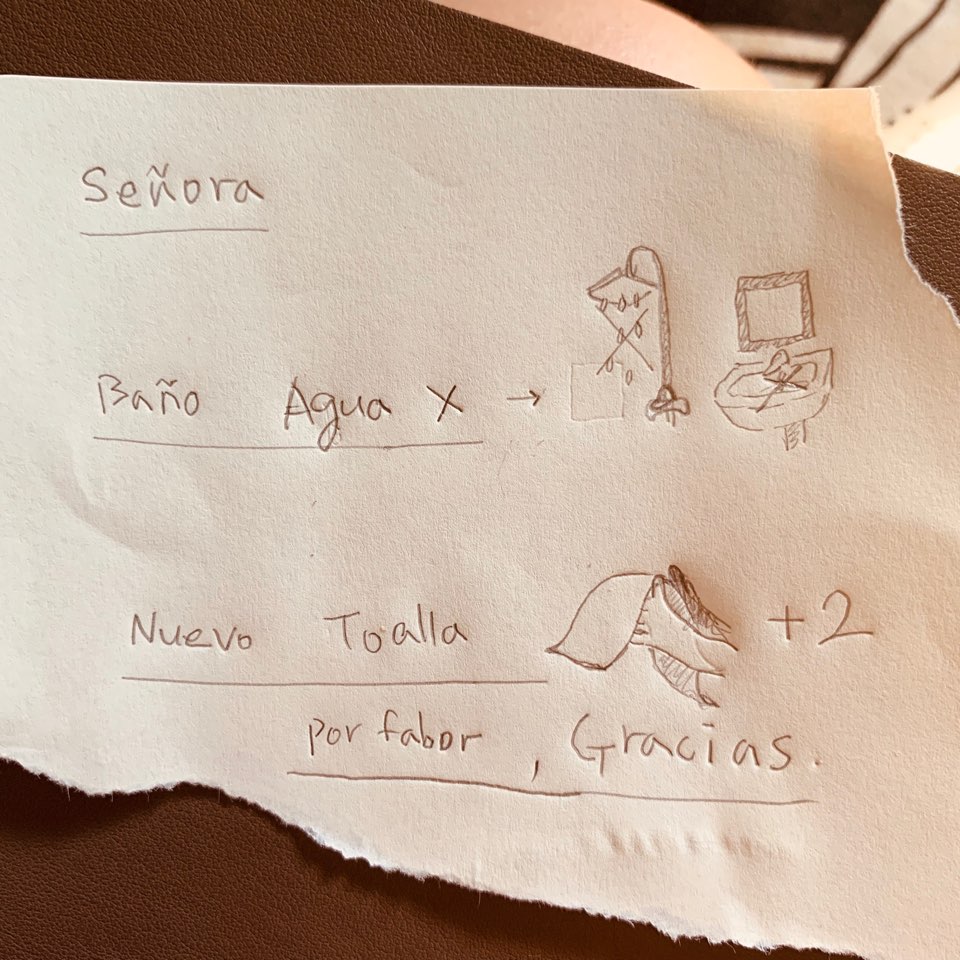 Señora
Baño Agua X →
Nuevo Toalla +2
por fabor, Gracias.